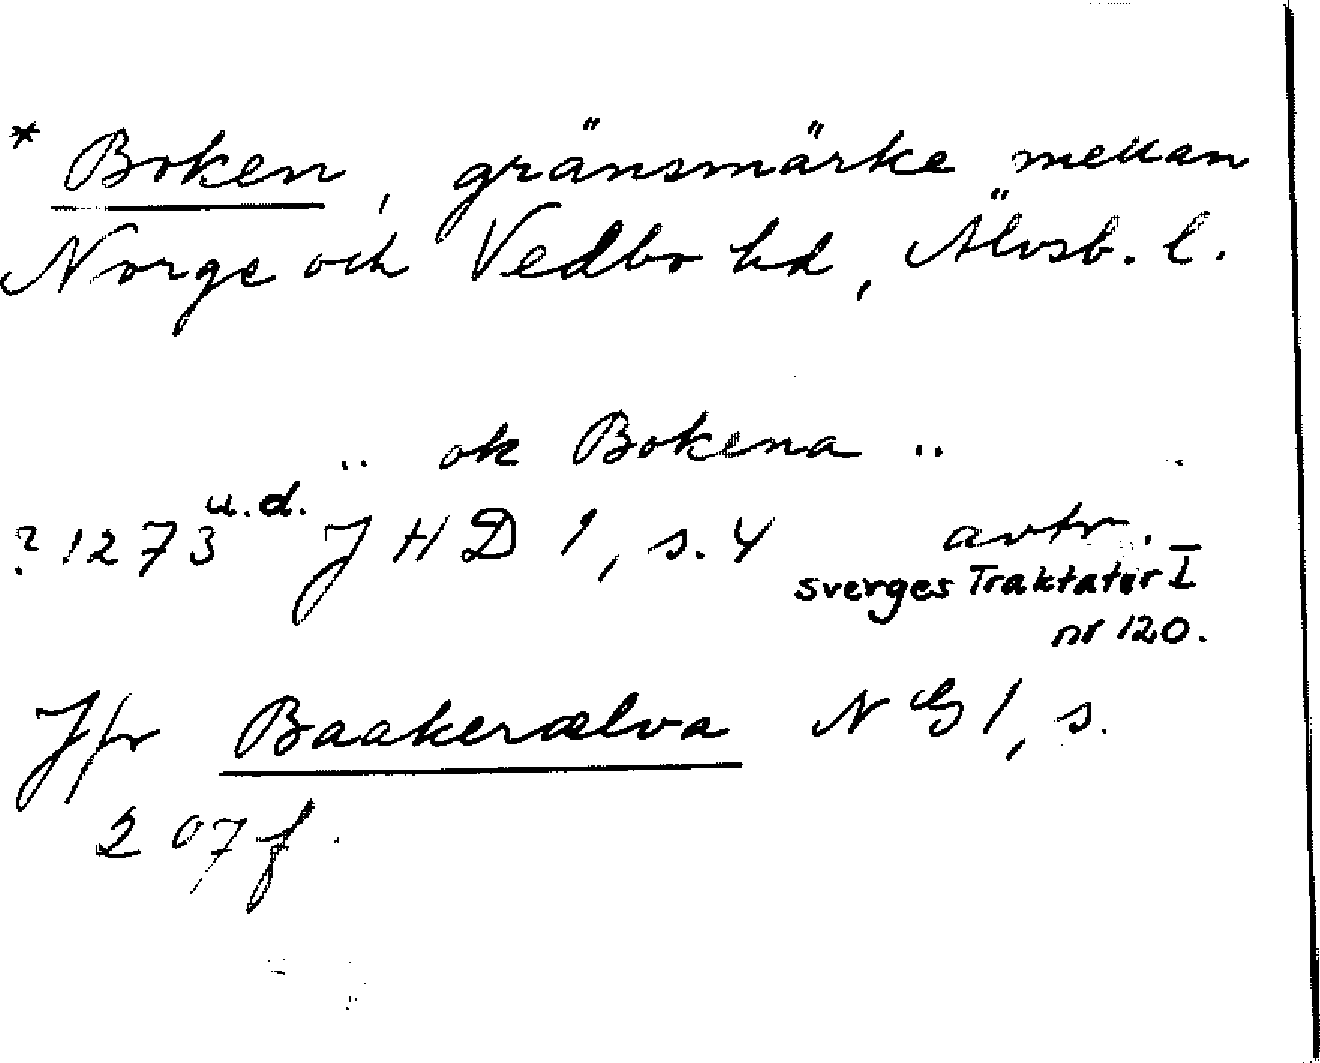 * Boken, gränsmärke mellan
Norge och Vedbo hd, Älvsb. l.
.. ok Bokena ..
?1273 u.d. JHD 1, s. 4 avtr.
Sverges Traktater I
nr 120.
Jfr Baakerælva NG 1, s.
207 f.